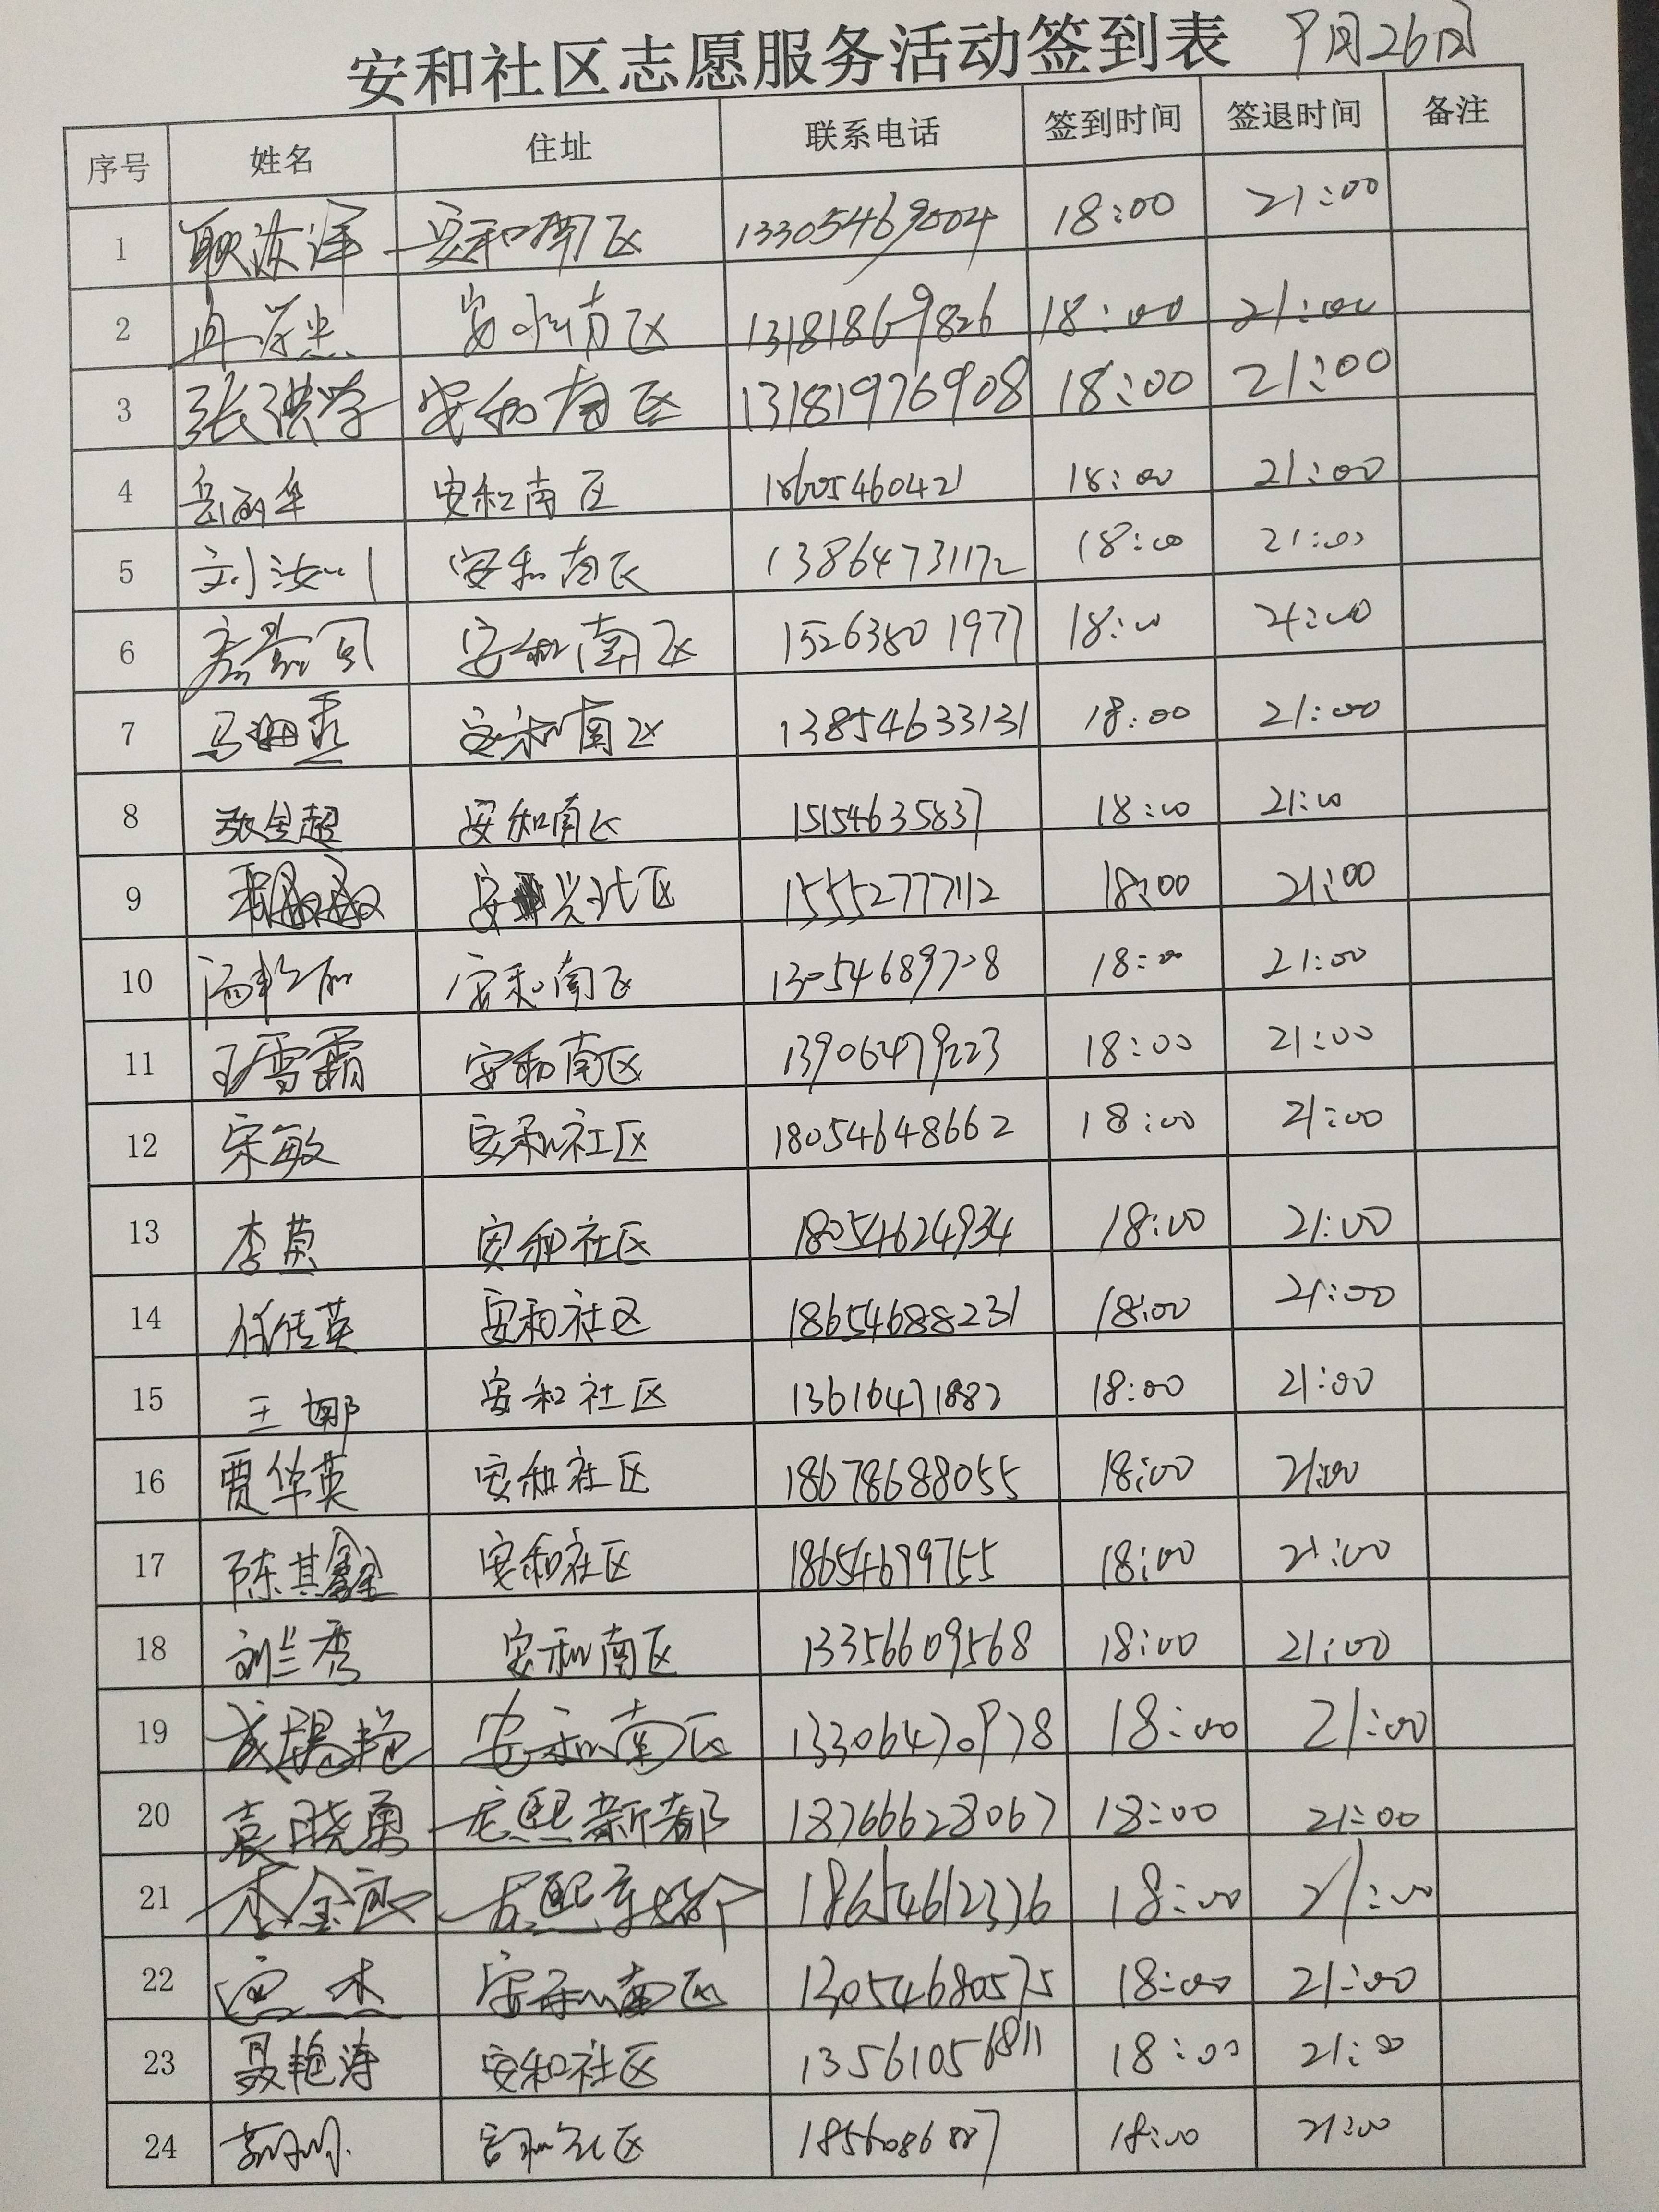 安和社区志愿服务活动签到表 9月26日
序号 姓名 住址 联系电话 签到时间 签退时间 备注
1 耿 安和南区 13305469004 18:00 21:00
2 安和南区 13181869826 18:00 21:00
3 张洪学 安和南区 13181976908 18:00 21:00
4 岳丽华 安和南区 18605460421 18:00 21:00
5 刘汝川 安和南区 13864731172 18:00 21:00
6 安和南区 15263801977 18:00 21:00
7 马 安和南区 13854633131 18:00 21:00
8 张金超 安和南区 15154635837 18:00 21:00
9 安兴北区 15552777112 18:00 21:00
10 安和南区 13054689708 18:00 21:00
11 王雪霜 安和南区 13906479223 18:00 21:00
12 宋敏 安和社区 18054648662 18:00 21:00
13 李英 安和社区 18054624934 18:00 21:00
14 任传英 安和社区 18654688231 18:00 21:00
15 王娜 安和社区 13616471882 18:00 21:00
16 贾华英 安和社区 18678688055 18:00 21:00
17 陈其鑫 安和社区 18654699755 18:00 21:00
18 刘兰秀 安和南区 13356609568 18:00 21:00
19 安和南区 13306470978 18:00 21:00
20 袁晓勇 龙熙新都 18766628067 18:00 21:00
21 李金 18654612336 18:00 21:00
22 安和南区 13054680575 18:00 21:00
23 聂艳涛 安和社区 13561056811 18:00 21:00
24 安和社区 18:00 21:00